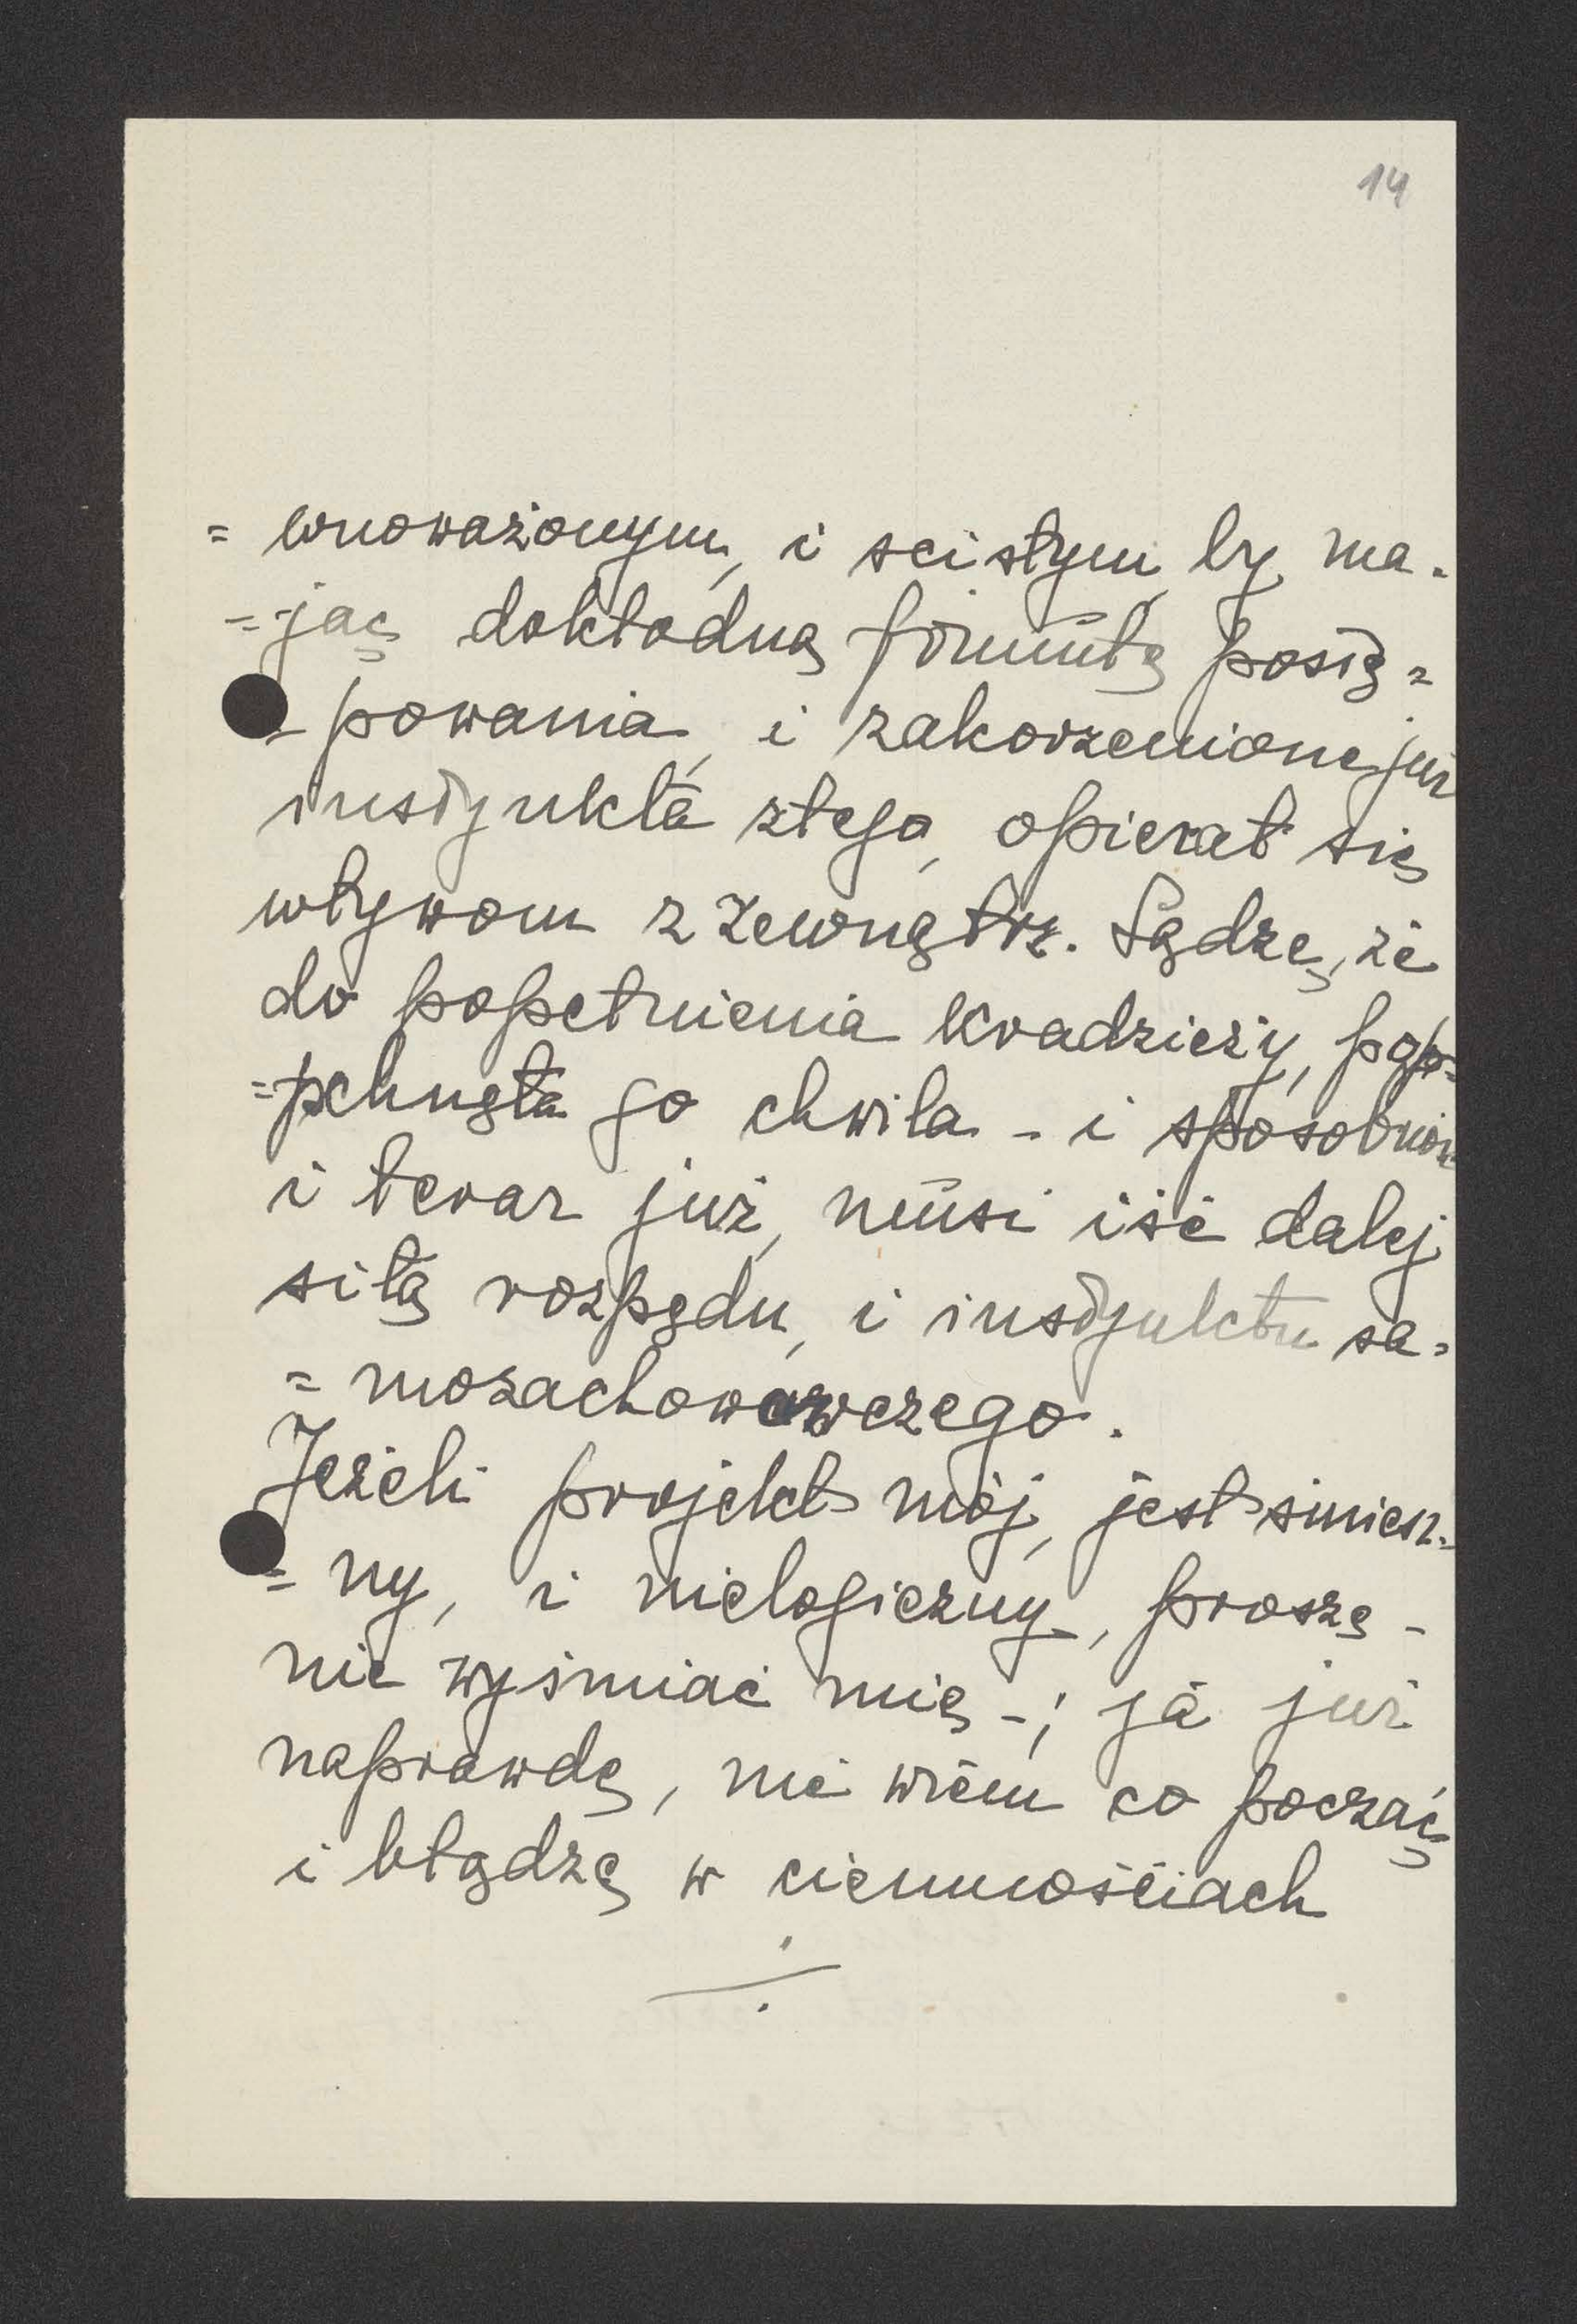 14
= wnoważonym, i scisłym, by ma-
=jąc dokładną formułę postę=
=powania, i zakorzenione już
instynkta złego, opierał się
wływom z zewnątrz. Sądzę, że
do popełnienia kradzieży, pop=
=pchnęła go chwila - i sposobność
i teraz już, musi iść dalej
siłą rozpędu, i instynktu sa=
=mozachowawczego.
Jeżeli projekt mój, jest śmiesz=
=ny, i nielogiczny, proszę -
nie wyśmiać mię -; ja już
naprawdę, nie wiem co począć
i błądzę w ciemnościach